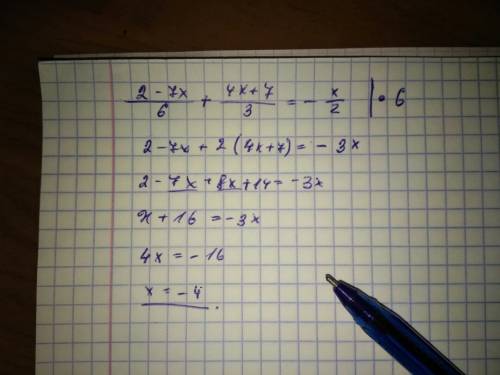 (2 - 7x)/6 + (4x + 7)/3 = - x/2 | • 6
2 - 7x + 2(4x+7) = - 3x
2 - 7x + 8x + 14 = -3x
x + 16 = -3x
4x = - 16
x = - 4.